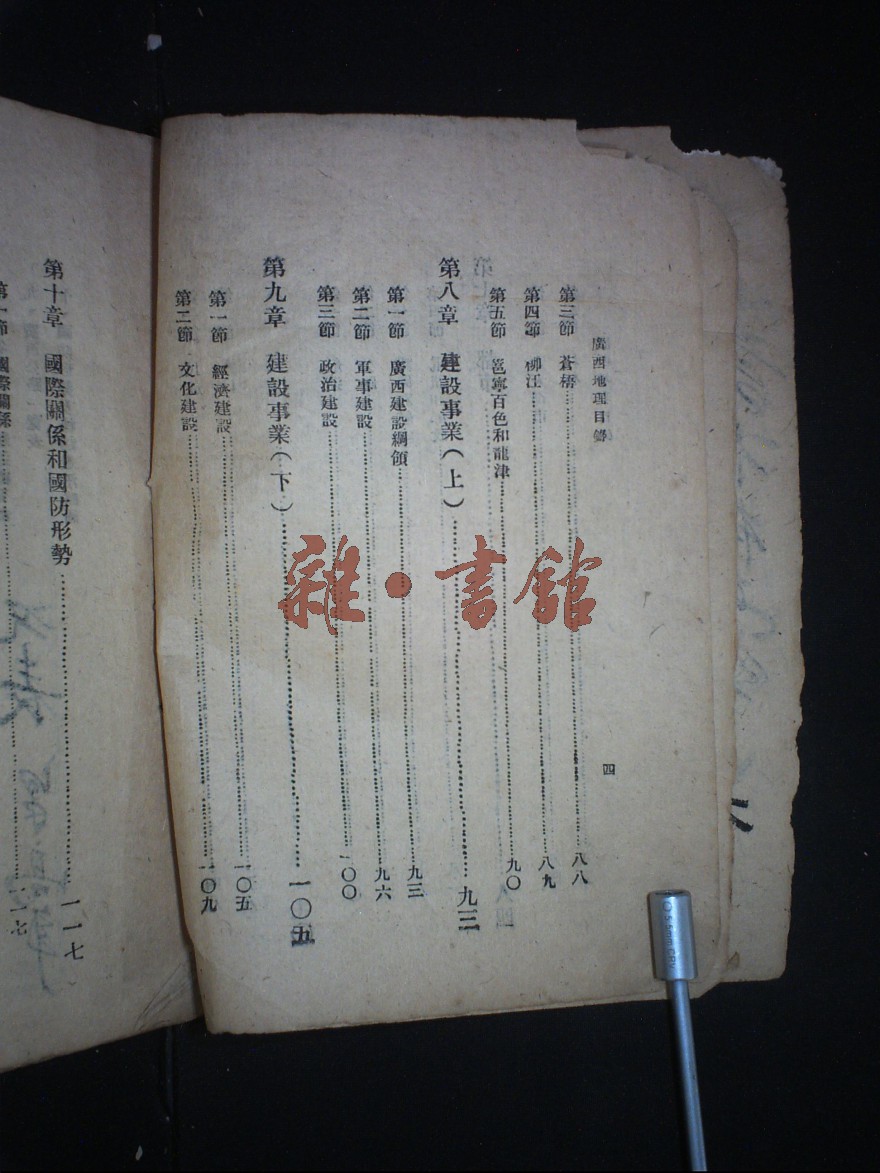 廣西地理目錄
四
第三節 蒼梧……八八
第四節 柳江……八九
第五節 邕寧百色和龍津……九〇
第八章 建設事業(上)……九三
第一節 廣西建設綱領……九三
第二節 軍事建設……九六
第三節 政治建設……一〇〇
第九章 建設事業(下)……一〇五
第一節 經濟建設……一〇五
第二節 文化建設……一〇九
第十章 國際關係和國防形勢……一一七
第一節 國際關係……一一七
雜·書館
5.5mm CRV